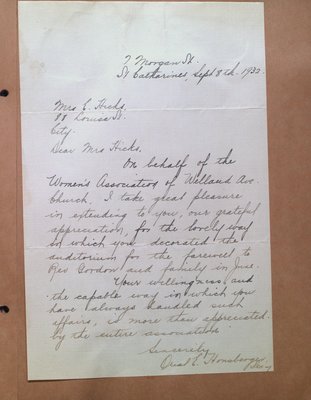 7 Morgan St.
St Catharines, Sept 8th, 193
Mrs E. Hicks,
88 Louisa St.
City.
Dear Mrs Hicks.
On behalf of the
Women's Association of Welland Ave
Church. I take great pleasure
in extending to you, our grateful
appreciation, for the lovely way
in which you decorated the
auditorium for the farewell to
Rev Gordon and family in June.
Your willingness and
the capable way in which you
have always handled such
affairs, is more than appreciated
by the entire association.
Sincerely
E. Honsberger
Secy